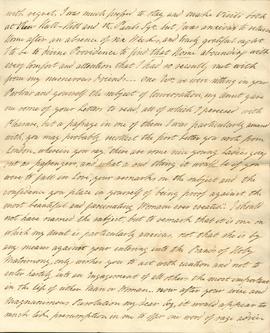 with regret. I was much pressed to stay and make Visits both
at New and the Pauls &c. but, I was anxious to return
home after an absence of six Weeks, and truly grateful ought
I to be to Divine Providence to find that home abounding with
every comfort and attention that I had so recently met with
from my numerous Friends... One Eve as were sitting in my
Parlour and yourself the subject of Conversation, my Aunt gave
me some of your Letters to read, all of which I perused with
Pleasure, but a passage in one of them I was particularly amused
with, you may probably recollect the first letter you wrote from
London, wherein you say, there are some nice young Ladies
and what a sad thing it would be if you
were to fall in Love, your remarks on the subject and the
confidence you place in yourself of being proof against the
most beautiful and fascinating Woman ever created. I should
not have named the subject, but to remark that it is one in
which my Aunt is particularly anxious, not that she is by
any means against your entering into the Banns of Holy
Matrimony, only wishes you to act with caution and not to
enter hastily into an Engagement of all others the most important
in the life of either Man or Woman. now after your wise and
Magnanimous Resolution my dear Boy, it would appear to
much like presumption in me to offer one word of sage advice